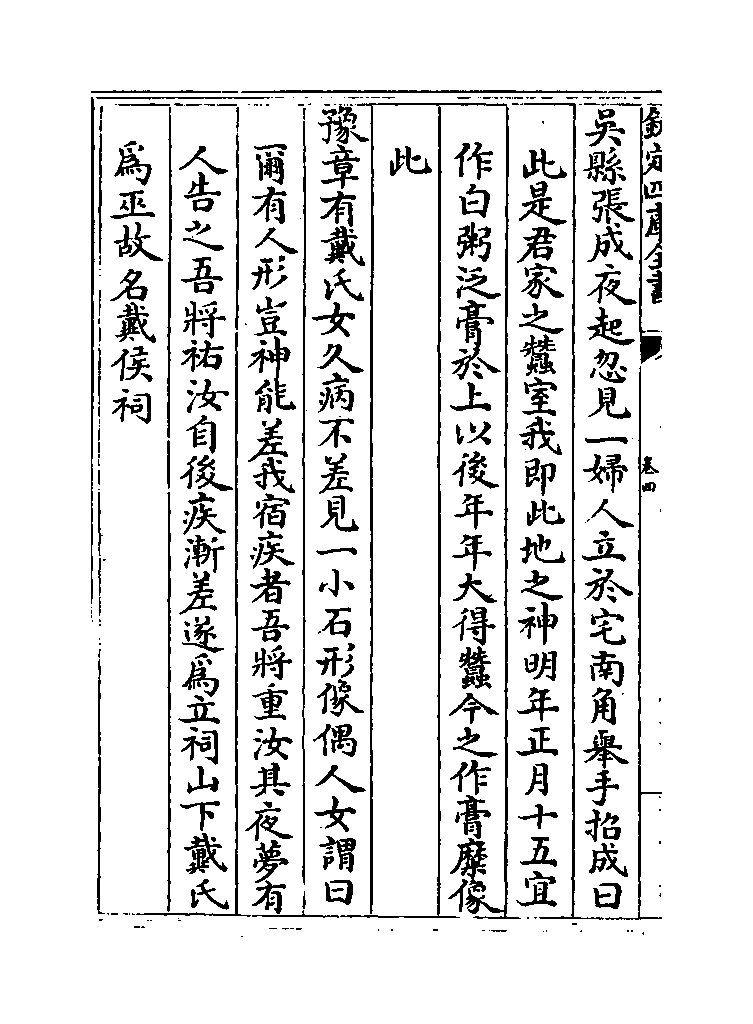 欽定四庫全書
卷四
吳縣張成夜起忽見一婦人立於宅南角舉手招成曰
此是君家之蠶室我即此地之神明年正月十五宜
作白粥泛膏於上以後年年大得蠶今之作膏糜像
此
豫章有戴氏女久病不差見一小石形像偶人女謂曰
爾有人形豈神能差我宿疾者吾將重汝其夜夢有
人告之吾將祐汝自後疾漸差遂為立祠山下戴氏
為巫故名戴侯祠